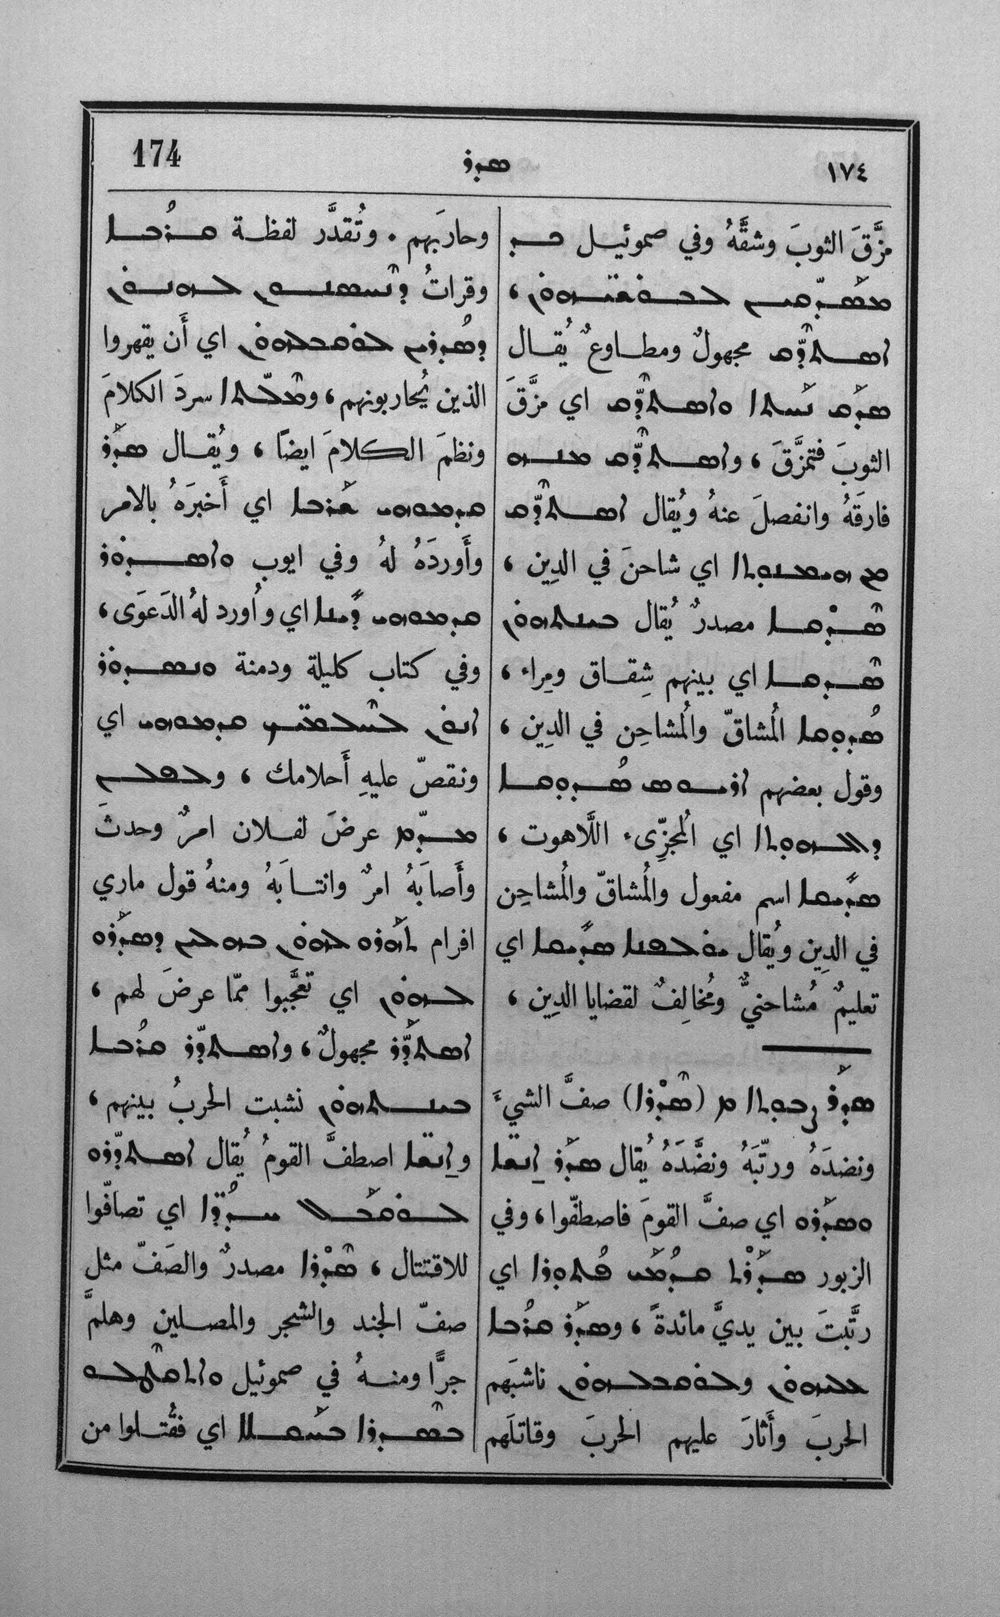 174
ܣܕܪ
١٧٤
مزَّقَ الثوبَ وشقَّهُ وفي صموئيل ܟܕ
ܡܣܕܩܝܢ ܠܒܘܫܝܗܘܢ ،
ܐܣܬܕܩ مجهولٌ ومطاوعٌ يُقال
ܣܕܩ ܢܚܬܐ ܘܐܣܬܕܩ اي مزَّقَ
الثوبَ فتمزَّقَ ، وܐܣܬܕܩ ܡܢܗ
فارقَهُ وانفصلَ عنهُ ويُقال ܐܣܬܕܩ
ܡ ܗܝܡܢܘܬܐ اي شاحنَ في الدِين ،
ܣܕܩܐ مصدرٌ يُقال ܒܝܢܬܗܘܢ
ܣܕܩܐ اي بينهم شِقاق ومِراء ،
ܣܕܘܩܐ المُشاقّ والمُشاحِن في الدِين ،
وقول بعضهم ܐܪܝܘܣ ܣܕܘܩܐ
ܕܐܠܗܘܬܐ اي المُجزِّىء اللَّاهوت ،
ܣܕܝܩܐ اسم مفعول والمُشاقّ والمُشاحِن
في الدِين ويُقال ܝܘܠܦܢܐ ܣܕܝܩܐ اي
تعليمٌ مُشاحنيٌّ ومُخالِفٌ لقضايا الدِين ،
ܣܕܪ ܨܒܘܬܐ ܡ (ܣܕܪܐ) صفَّ الشيَّ
ونضدَهُ ورتّبَهُ ونضَّدَهُ يُقال ܣܕܪ ܐܢܫܐ
ܘܣܕܪܘ اي صفَّ القومَ فاصطفّوا ، وفي
الزبور ܣܕܪܬ ܩܕܡܝ ܦܬܘܪܐ اي
رتَّبتَ بين يديَّ مائدةً ، وܣܕܪ ܩܪܒܐ
ܥܠܝܗܘܢ وܠܘܩܒܠܗܘܢ ناشبَهم
الحربَ وأَثارَ عليهم الحربَ وقاتلَهم
وحاربَهم . وتُقدَّر لفظة ܩܪܒܐ
وقراتُ ܕܢܚܣܢܘܢ ܠܗܢܘܢ
ܕܣܕܪܝܢ ܠܘܩܒܠܗܘܢ اي أَن يقهروا
الذين يُحاربونهم ، وܡܠܬܐ سردَ الكلامَ
ونظمَ الكلامَ ايضًا ، ويُقال ܣܕܪ
ܩܕܡܘܗܝ ܫܪܒܐ اي أَخبرَهُ بالامر
وأَوردَهُ لهُ وفي ايوب ܘܐܣܕܘܪ
ܩܕܡܘܗܝ ܕܝܢܐ اي وأُورد لهُ الدَعوَى ،
وفي كتاب كليلة ودمنة ܘܢܣܕܘܪ
ܐܢܘܢ ܠܚܠܡܝܟ ܩܕܡܘܗܝ اي
ونقصّ عليهِ أَحلامك ، وܠܦܠܢ
ܡܕܡ عرضَ لفلان امرٌ وحدثَ
وأَصابَهُ امرٌ وانتابَهُ ومنهُ قول ماري
افرام ܬܗܪܘ ܠܗܘܢ ܒܗܠܝܢ ܕܣܕܪܘ
ܠܗܘܢ اي تعجَّبوا ممّا عرضَ لهم ،
ܐܣܬܕܪ مجهولٌ ، وܐܣܬܕܪ ܩܪܒܐ
ܒܝܢܬܗܘܢ نشبت الحربُ بينهم ،
وܐܢܫܐ اصطفَّ القومُ يُقال ܐܣܬܕܪܘ
ܠܘܩܒܠ ܚܕܕܐ اي تصافّوا
للاقتتال ، ܣܕܪܐ مصدرٌ والصَفّ مثل
صفّ الجند والشجر والمصلين وهلمَّ
جرًّا ومنهُ في صموئيل ܘܐܬܩܛܠܘ
ܒܣܕܪܐ ܒܚܩܠܐ اي فقُتلوا من